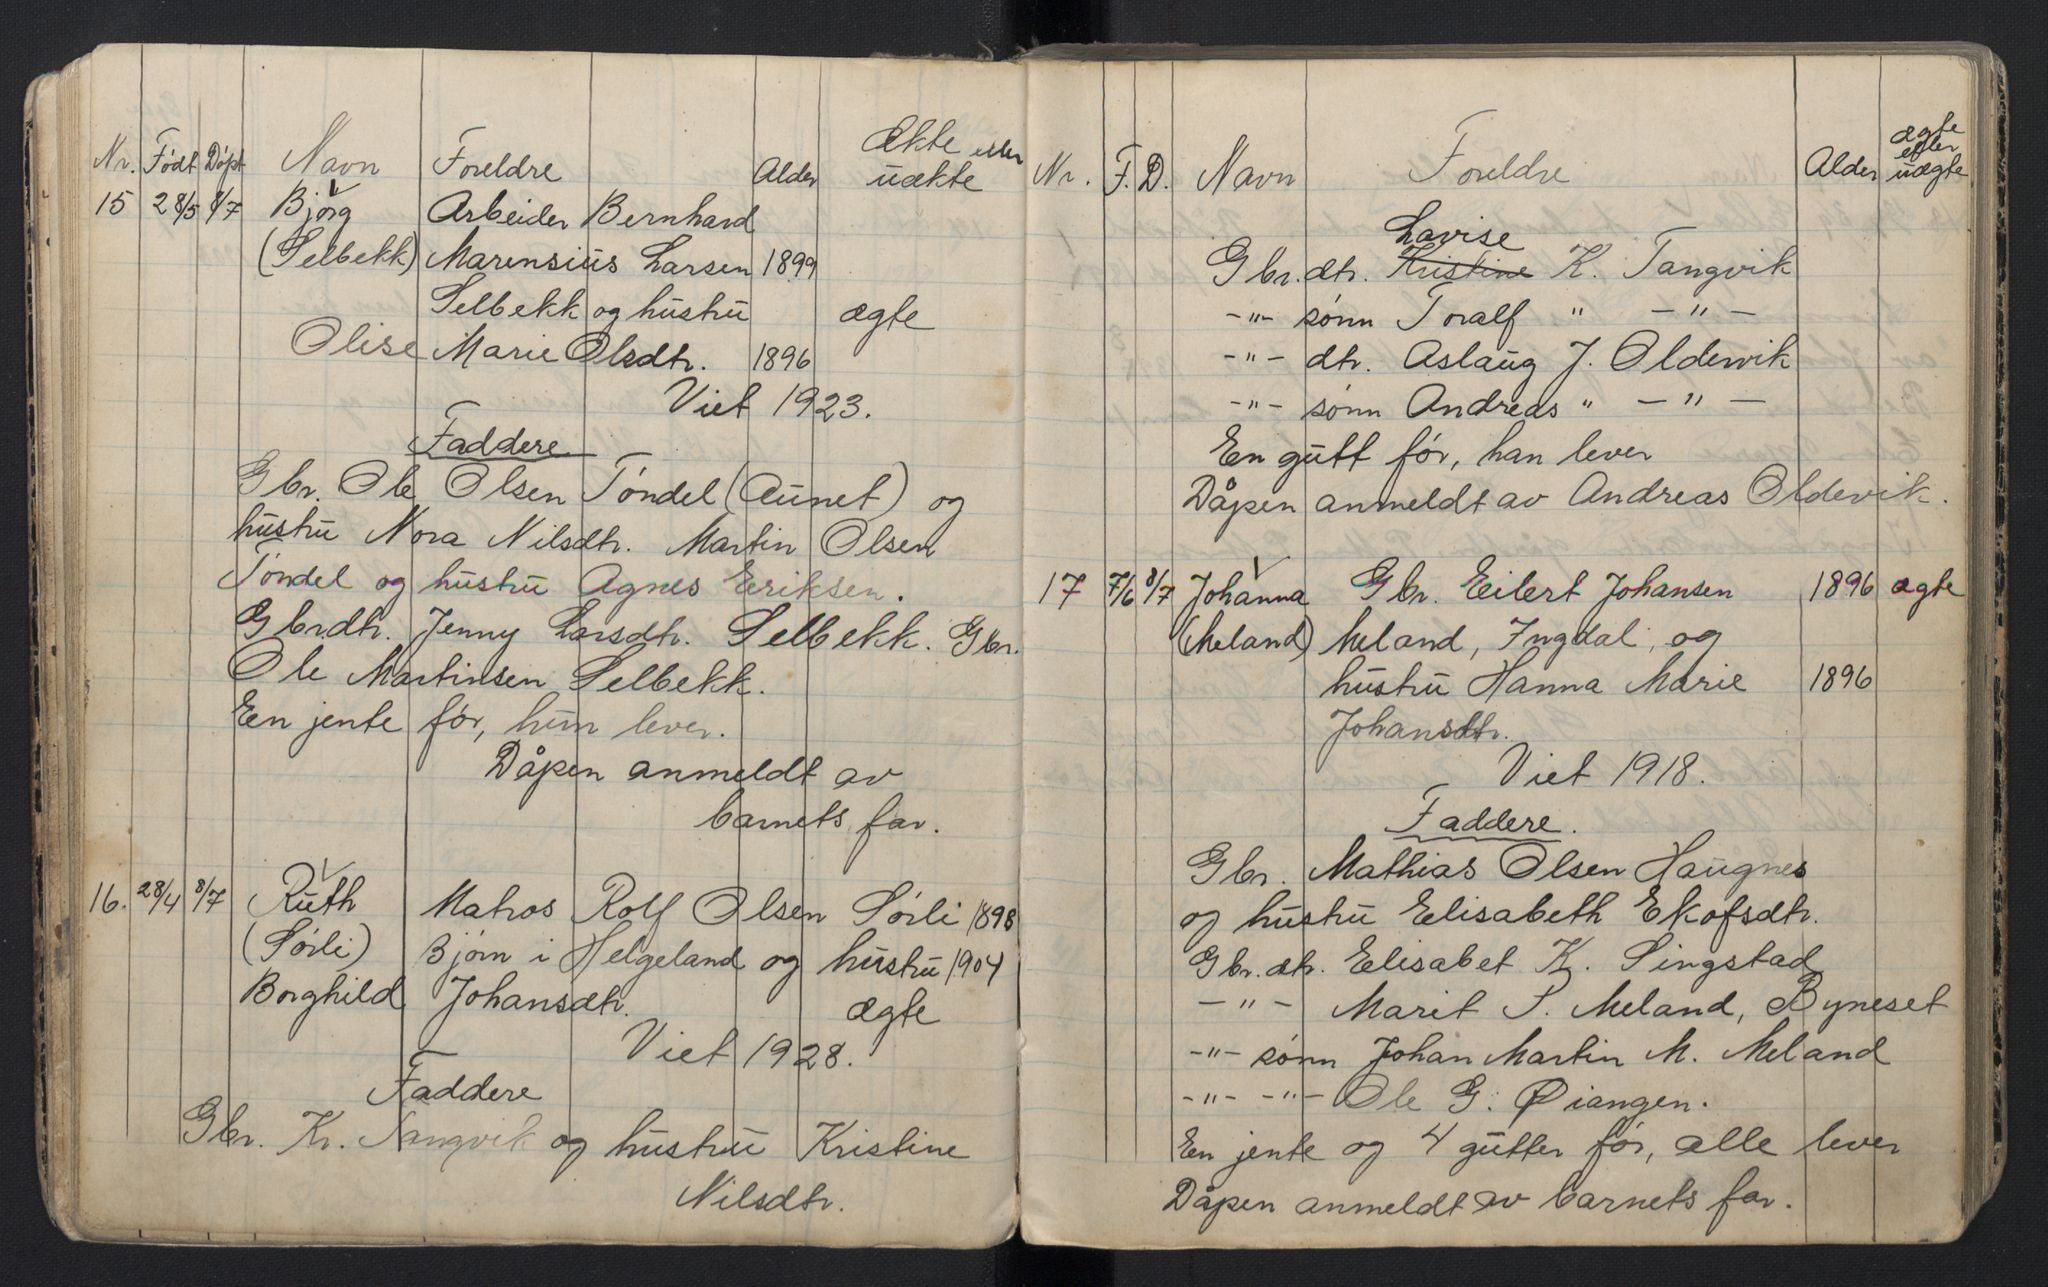 Nr. Født Døpt Navn Foreldre Alder Ækte eller uækte
15 28/5 8/7 Bjørg Arbeider Bernhard
(Selbekk) Marensius Larsen 1899
Selbekk og hustru ægte
Olise Marie Olsdtr. 1896
Viet 1923.
Faddere
Gbr. Ole Olsen Tøndel (Aunet) og
hustru Nora Nilsdtr. Martin Olsen
Tøndel og hustru Agnes Eriksen.
Gbrdtr. Jenny Larsdtr. Selbekk. Gbr.
Ole Martinsen Selbekk.
En jente før, hun lever.
Dåpen anmeldt av
barnets far.
16. 28/4 8/7 Ruth Matros Rolf Olsen Sørli 1898
(Sørli) Bjørn i Helgeland og hustru 1904
Borghild Johansdtr. ægte
Viet 1928.
Faddere
Gbr. Kr. Tangvik og hustru Kristine
Nilsdtr.
Nr. F. D. Navn Foreldre Alder ægte eller uægte
Lovise
Gbr.dtr. Kristine K. Tangvik
-"- sønn Toralf " -"-
-"- dtr. Aslaug J. Oldervik
-"- sønn Andreas " -"-
En gutt før, han lever
Dåpen anmeldt av Andreas Oldevik.
17 7/6 8/7 Johanna Gbr. Eilert Johansen 1896 ægte
(Meland) Meland, Ingdal, og
hustru Hanna Marie 1896
Johansdtr.
Viet 1918.
Faddere.
Gbr. Mathias Olsen Haugnes
og hustru Elisabeth Ekofsdtr.
Gbr. dtr. Elisabet K. Singstad
-"- Marit S. Meland, Byneset
-"- sønn Johan Martin M. Meland
-"- -"- Ole G. Øiangen.
En jente og 4 gutter før, alle lever
Dåpen anmeldt av barnets far.